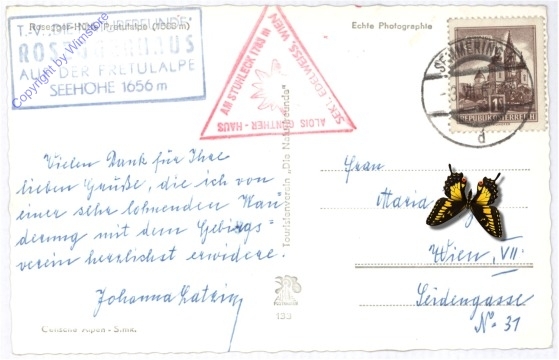 T.-V. DIE NATURFREUNDE
Rosegger-Haus Pretulalpe (1656 m)
ROSEGGERHAUS
AUF DER PRETULALPE
SEEHÖHE 1656 m
Copyright by Wimstore
AM STUHLECK 1783 m
SEKT. EDELWEISS, WIEN
ALOIS GÜNTHER - HAUS
Echte Photographie
SEMMERING
REPUBLIK ÖSTERREICH
d
Vielen Dank für Ihre
lieben Grüße, die ich von
einer sehr lohnenden Wan
derung mit dem Gebirgs-
verein herzlichst erwidere.
Johanna
Touristenverein „Die Naturfreunde"
133
Frau
Maria
Wien, VII.
Seidengasse
No 31